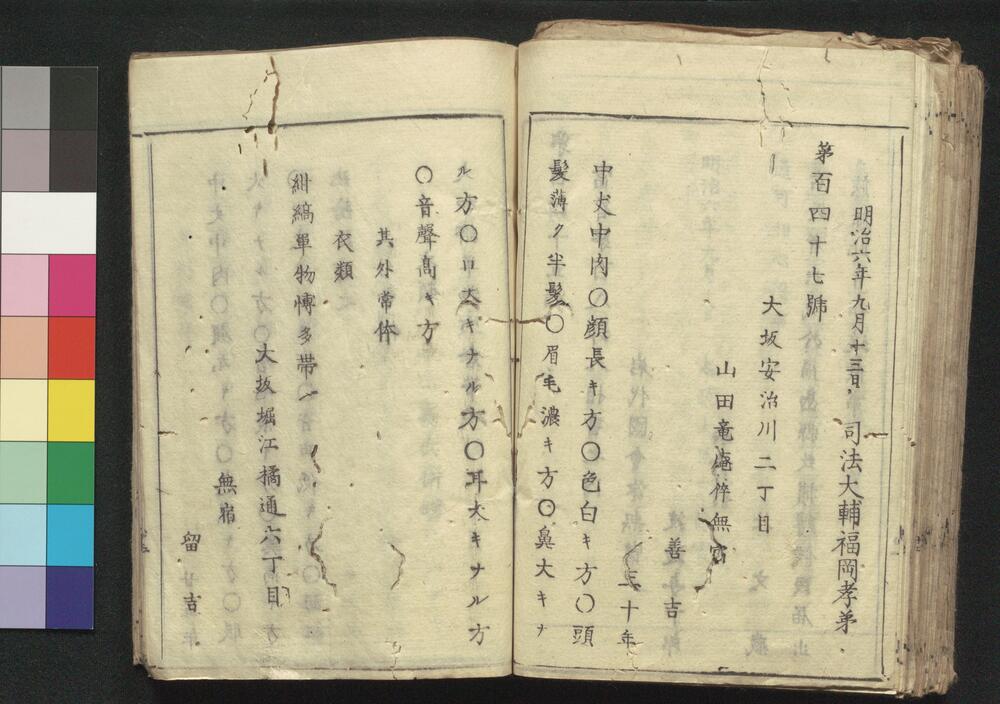 第百四十七號
明治六年九月十三日 司法大輔福岡孝弟
大坂安治川二丁目
山田竜庵倅無宿
善吉
三十年
中丈中肉〇顔長キ方〇色白キ方〇頭
髪薄ク半髪〇眉毛濃キ方〇鼻大キナ
ル方〇口大キナル方〇耳大キナル方
〇音聲高キ方
其外常体
衣類
紺縞單物博多帯
〇大坂堀江橘通六丁目
無宿
留吉